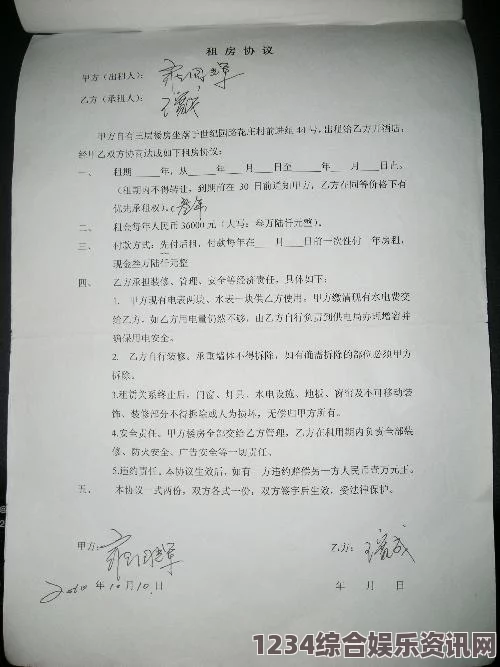 租房协议
甲方（出租人）：
乙方（承租人）：
甲方自有三层楼房坐落于世纪园路花庄村前进组44号，出租给乙方开酒店，
经甲乙双方协商达成如下租房协议：
一、 租期 年，从 年 月 日至 年 月 日止。
（租期内不得转让，到期前在 30 日前通知甲方，乙方在同等价格下有
优先承租权）。（叁年
二、 租金每年人民币 36000 元（大写：叁万陆仟元整）。
三、 付款方式：先付后租，付款每年在 月 日前一次性付 年房租，
现金叁万陆仟元整
四、 乙方承担装修、管理、安全等经济责任，具体如下：
1. 甲方现有电表两块、水表一块供乙方使用，甲方缴清现有水电费交
给乙方，如乙方用电量仍然不够，由乙方自行负责到供电局办理增容并
确保用电安全。
2. 乙方自行装修、承重墙体不得拆除，如有确需拆除的部位必须甲方
拆除。
3.租赁关系终止后，门窗、灯具、水电设施、地板、窗帘及不可移动装
饰、装修部分不得拆除或人为损坏，无偿归甲方所有。
4.安全责任。甲方楼房全部交给乙方管理，乙方在租用期内负责全部装
修、防火安全、广告安全等一切责任。
5.违约责任。本协议生效后，如有一方违约赔偿另一方人民币壹万元正。
五、 本协议一式两份，双方各式一份，双方签字后生效，受法律保护。
甲方： 乙方：
2010 年 10 月 10 日 年 月 日
1234综合娱乐资讯网